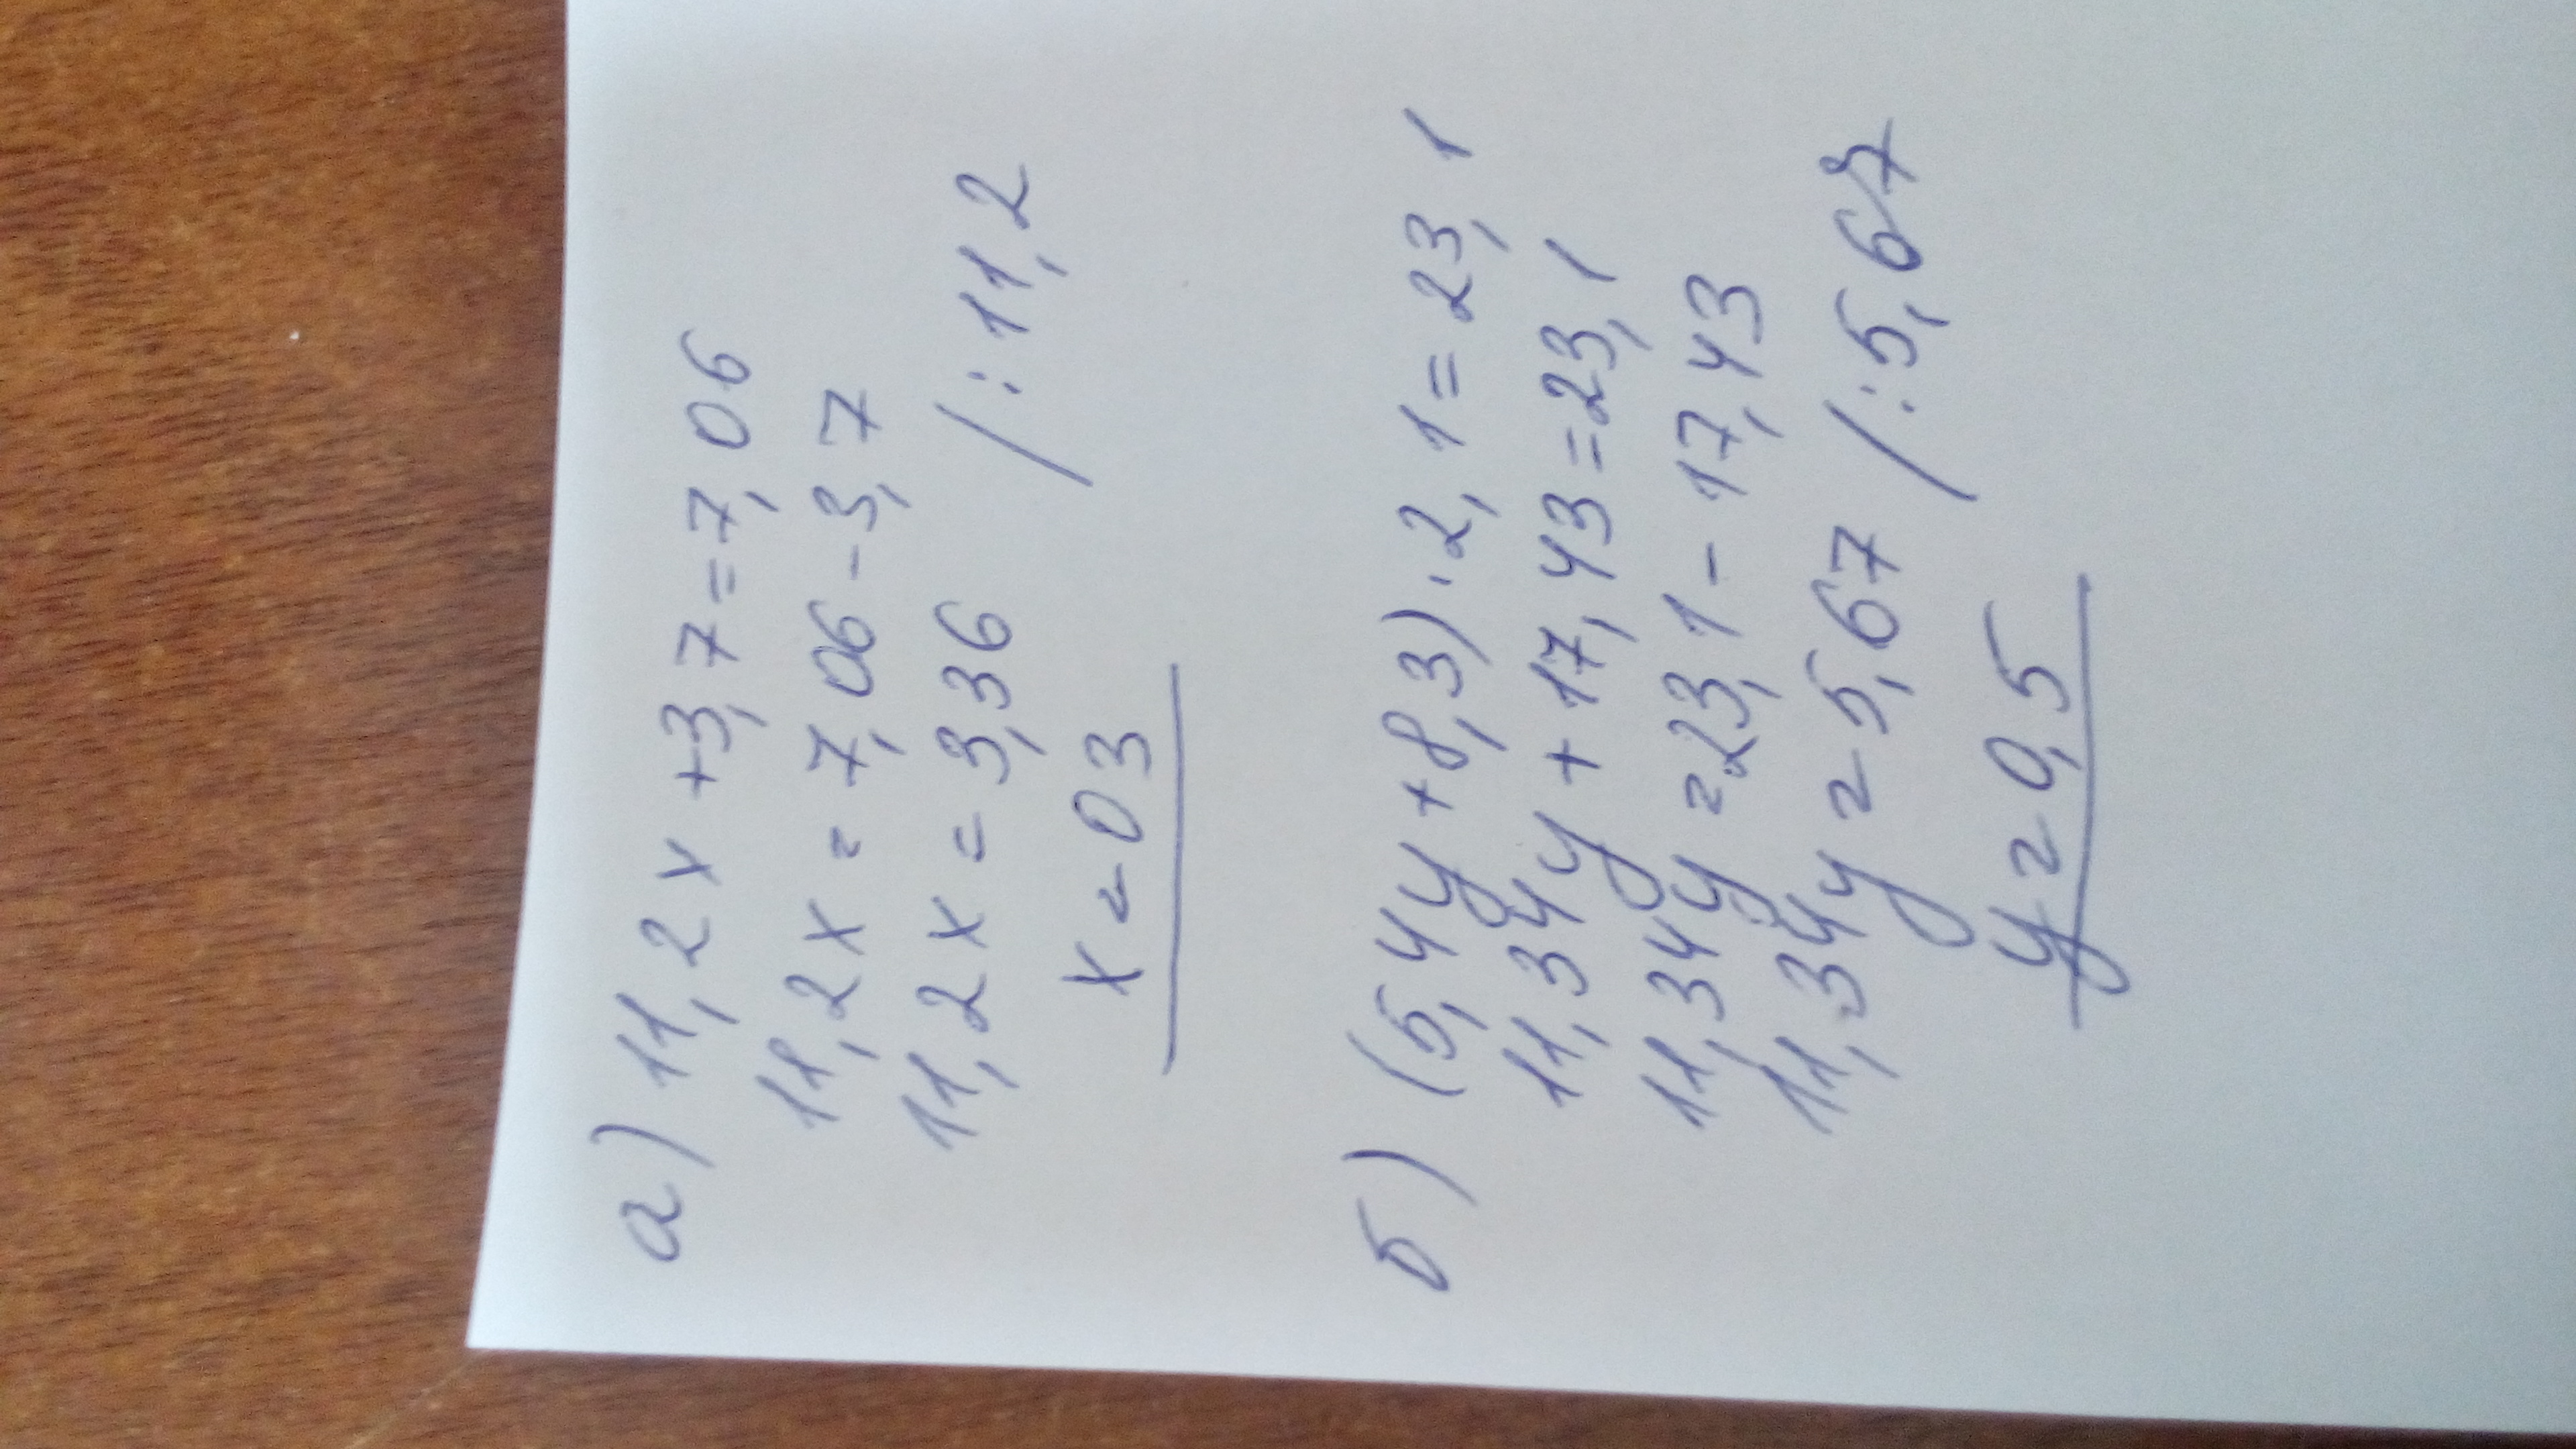 а) 11,2x + 3,7 = 7,06
11,2x = 7,06 - 3,7
11,2x = 3,36 /: 11,2
x = 03
б) (5,4y + 8,3) · 2,1 = 23,1
11,34y + 17,43 = 23,1
11,34y = 23,1 - 17,43
11,34y = 5,67 /: 5,67
y = 0,5